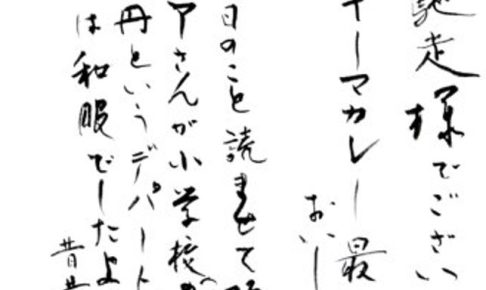 馳走様でござい
キーマカレー最
おいし
日のこと読ませて
アさんが小学校
丹というデパート
は和服でしたよ
昔